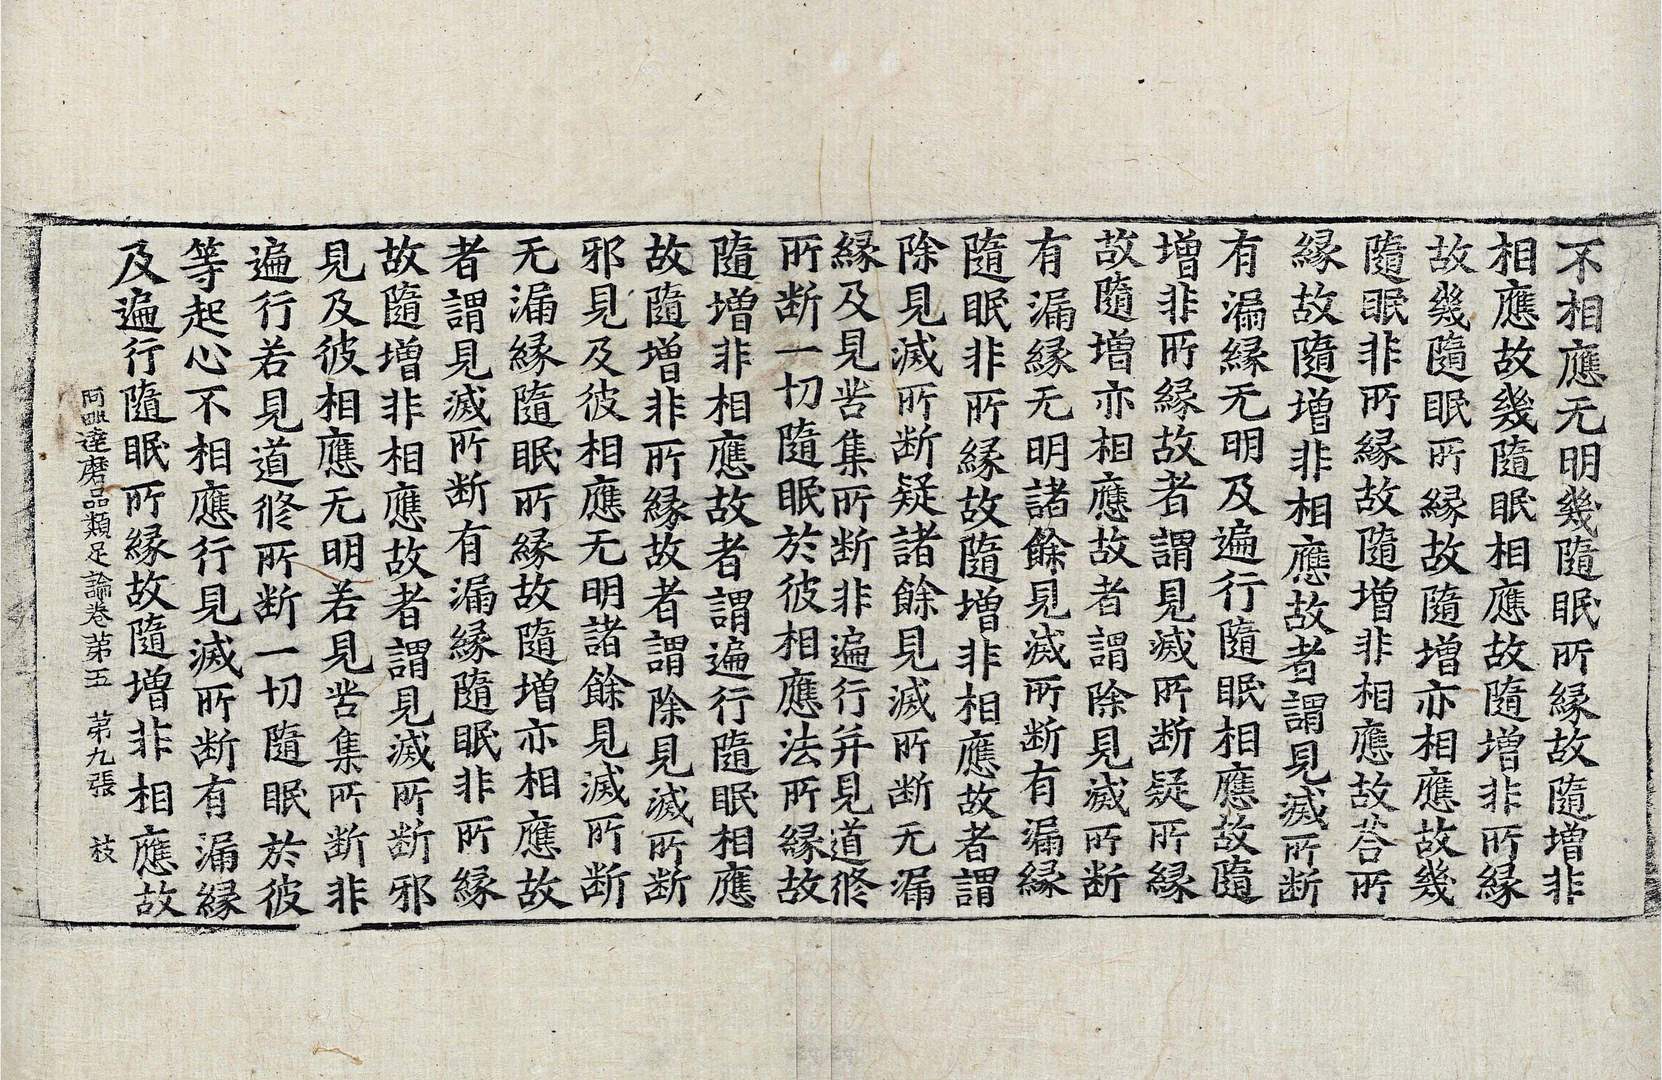 不相應无明幾隨眠所緣故隨增非
相應故幾隨眠相應故隨增非所緣
故幾隨眠所緣故隨增亦相應故幾
隨眠非所緣故隨增非相應故荅所
緣故隨增非相應故者謂見滅所斷
有漏緣无明及遍行隨眠相應故隨
增非所緣故者謂見滅所斷疑所緣
故隨增亦相應故者謂除見滅所斷
有漏緣无明諸餘見滅所斷有漏緣
隨眠非所緣故隨增非相應故者謂
除見滅所斷疑諸餘見滅所斷无漏
緣及見苦集所斷非遍行并見道修
所斷一切隨眠於彼相應法所緣故
隨增非相應故者謂遍行隨眠相應
故隨增非所緣故者謂除見滅所斷
邪見及彼相應无明諸餘見滅所斷
无漏緣隨眠所緣故隨增亦相應故
者謂見滅所斷有漏緣隨眠非所緣
故隨增非相應故者謂見滅所斷邪
見及彼相應无明若見苦集所斷非
遍行若見道修所斷一切隨眠於彼
等起心不相應行見滅所斷有漏緣
及遍行隨眠所緣故隨增非相應故
阿毗達磨品類足論卷第五 第九張 枝